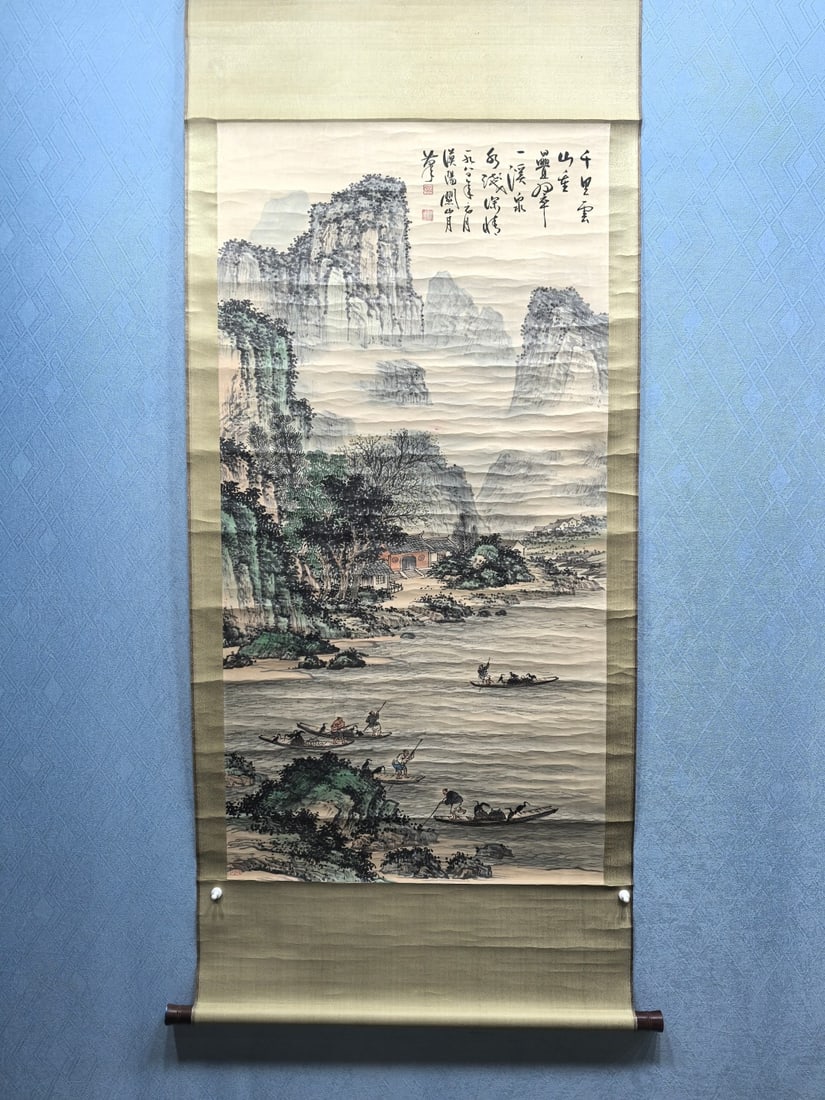 千里雲
山重
疊翠
一溪泉
水淺深情
一九八年月
漠陽關山月
筆